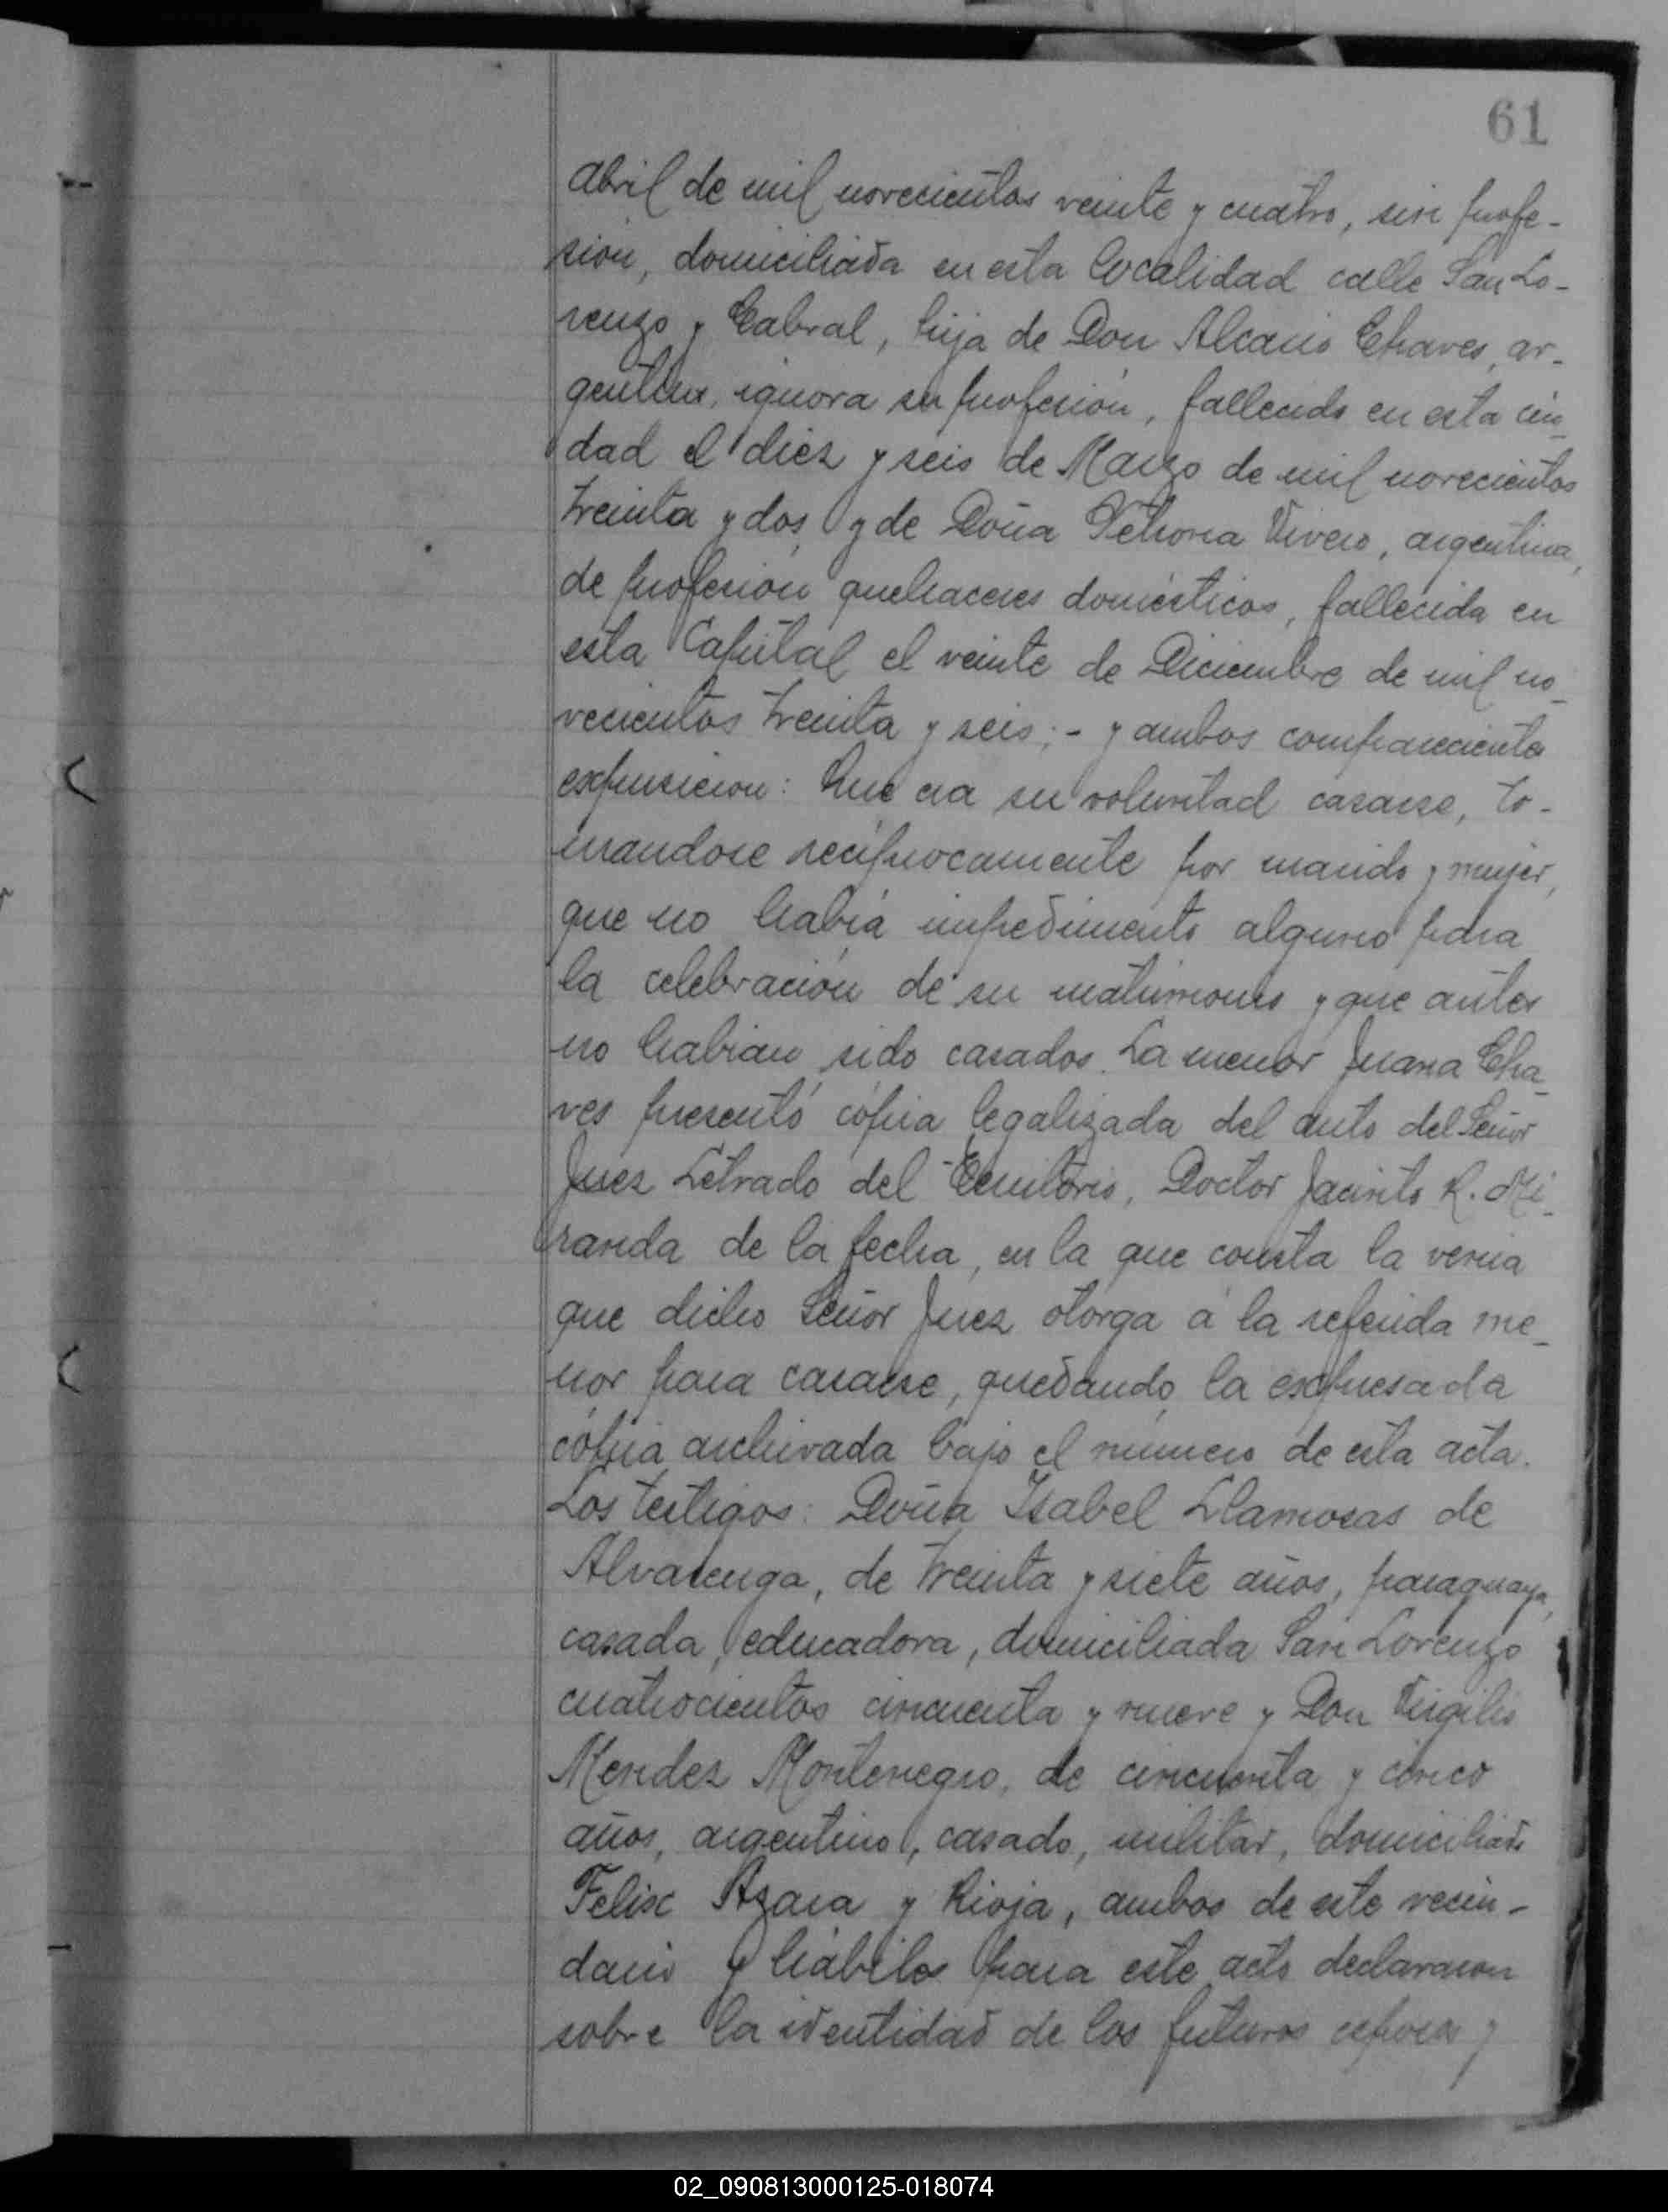 61
Abril de mil novecientos veinte y cuatro, sin profe-
sión, domiciliada en esta localidad calle San Lo-
renzo y Cabral, hija de Don Alcario Chaves, ar-
gentino, ignora su profesión, fallecido en esta ciu-
dad el diez y seis de Marzo de mil novecientos
treinta y dos, y de Doña Petrona Vivero, argentina,
de profesión quehaceres domésticos, fallecida en
esta Capital el veinte de Diciembre de mil no-
vecientos treinta y seis; - y ambos comparecientes
expusieron: Que era su voluntad casarse, to-
mandose recíprocamente por marido y mujer,
que no había impedimento alguno para
la celebración de su matrimonio y que antes
no habian sido casados. La menor Juana Cha-
ves presentó cópia legalizada del auto del Señor
Juez Letrado del Territorio, Doctor Jacinto R. Mi-
randa de la fecha, en la que consta la venia
que dicho Señor Juez otorga á la referida me-
nor para casarse, quedando la expresada
cópia archivada bajo el número de esta acta.
Los testigos: Doña Isabel Llamosas de
Alvarenga, de treinta y siete años, paraguaya,
casada, educadora, domiciliada San Lorenzo
cuatrocientos cincuenta y nueve y Don Virgilio
Mendez Montenegro, de cincuenta y cinco
años, argentino, casado, militar, domiciliado
Felix Azara y Rioja, ambos de este vecin-
dario y hábiles para este acto declararon
sobre la identidad de los futuros esposos y
02_090813000125-018074